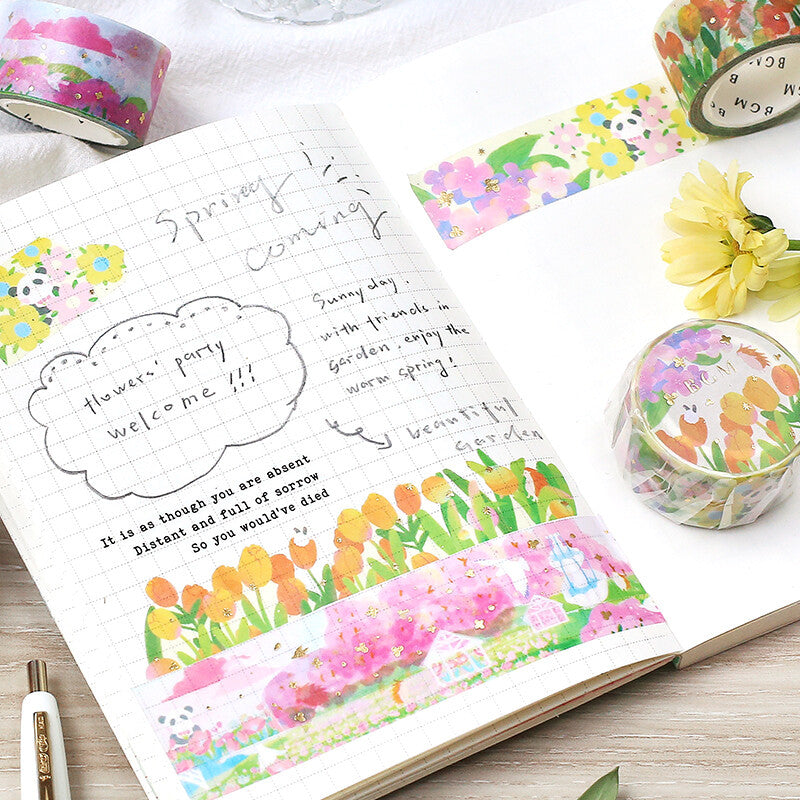 Spring
coming
Sunny day.
with friends in
garden, enjoy the
warm spring!
flowers' party
welcome !!!
beautiful
garden
It is as though you are absent
Distant and full of sorrow
So you would've died
BGM
BGM B
BGM